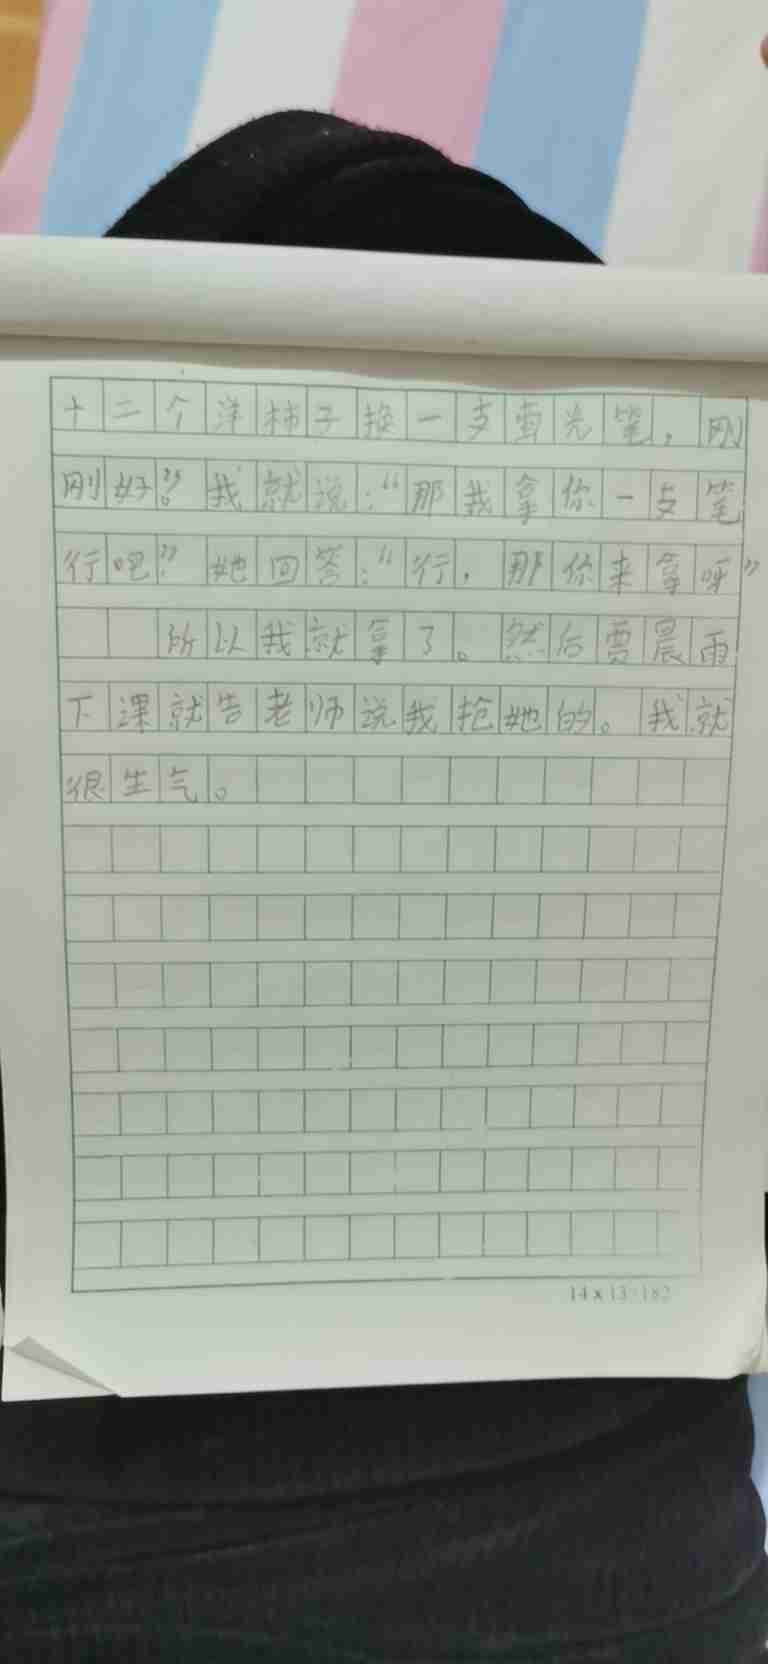 十二个洋柿子换一支萤光笔，刚
刚好”。我就说：“那我拿你一支笔
行吧”？她回答：“行，那你来拿呀”
所以我就拿了。然后贾晨雨
下课就告老师说我抢她的。我就
很生气。
14×13=182